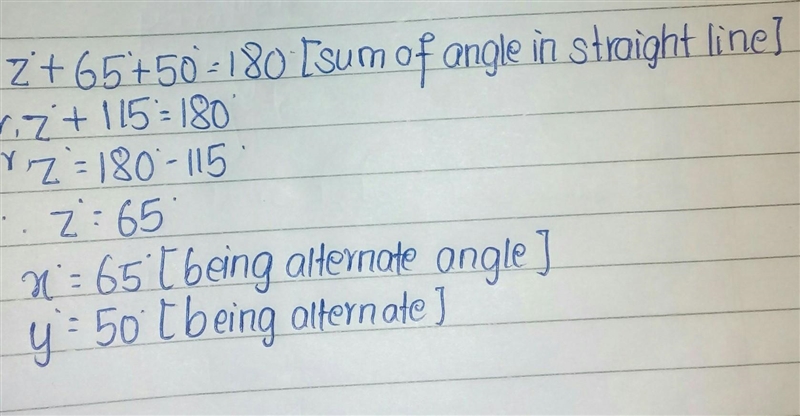 z° + 65° + 50° = 180° [sum of angle in straight line]
or, z° + 115° = 180°
or, z° = 180° - 115°
∴ z° = 65°
x° = 65° [being alternate angle]
y° = 50° [being alternate]